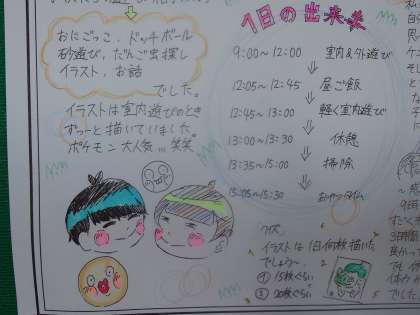 おにごっこ、ドッチボール
砂遊び、だんご虫探し
イラスト、お話
でした。
イラストは室内遊びのとき
ずーっと描いていました。
ポケモン大人気…笑笑
1日の出来事
9:00〜12:00 室内&外遊び
⇓
12:05〜12:45 昼ご飯
⇓
12:45〜13:00 軽く室内遊び
⇓
13:00〜13:30 休憩
⇓
13:35〜15:00 掃除
⇓
15:05〜15:30 おやつタイム
クイズ
イラストは1日何枚描いた
でしょう〜
① 15枚ぐらい
② 20枚ぐらい